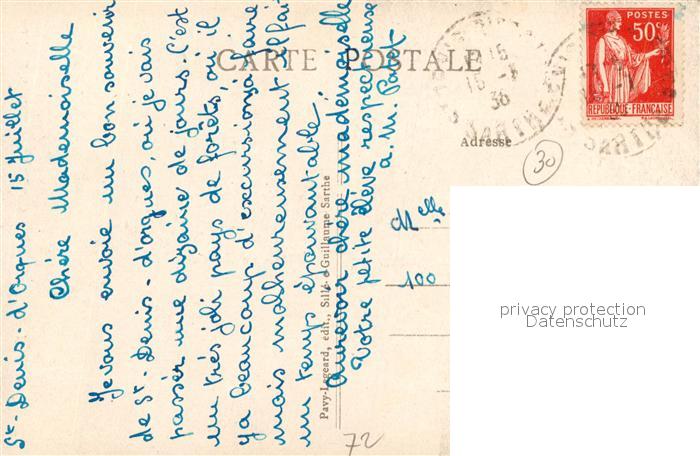 CARTE POSTALE
POSTES
50c
REPUBLIQUE-FRANÇAISE
15
36
SARTHE
Adresse
30
St-Denis-d'orques 15 Juillet
Chère Mademoiselle
Je vous envoie un bon souvenir
de St-Denis-d'orques, où je vais
passer une dizaine de jours. C'est
un très joli pays de forêts, où il
y a beaucoup d'excursions à faire
mais malheureusement il fait
un temps épouvantable.
Aurevoir chère mademoiselle
Votre petite élève respectueuse
a. M.
Pavy-Legeard, édit., Sillé-e-Guillaume Sarthe
Melle
100
privacy protection
Datenschutz
72